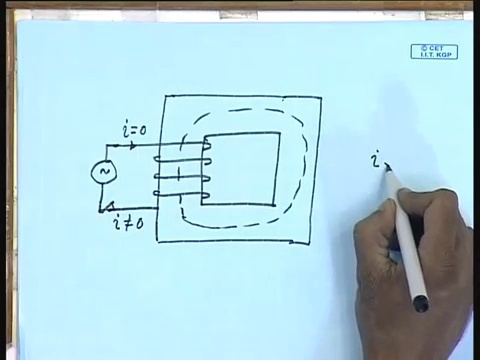 © CET
I.I.T. KGP
i=0
i≠0
i